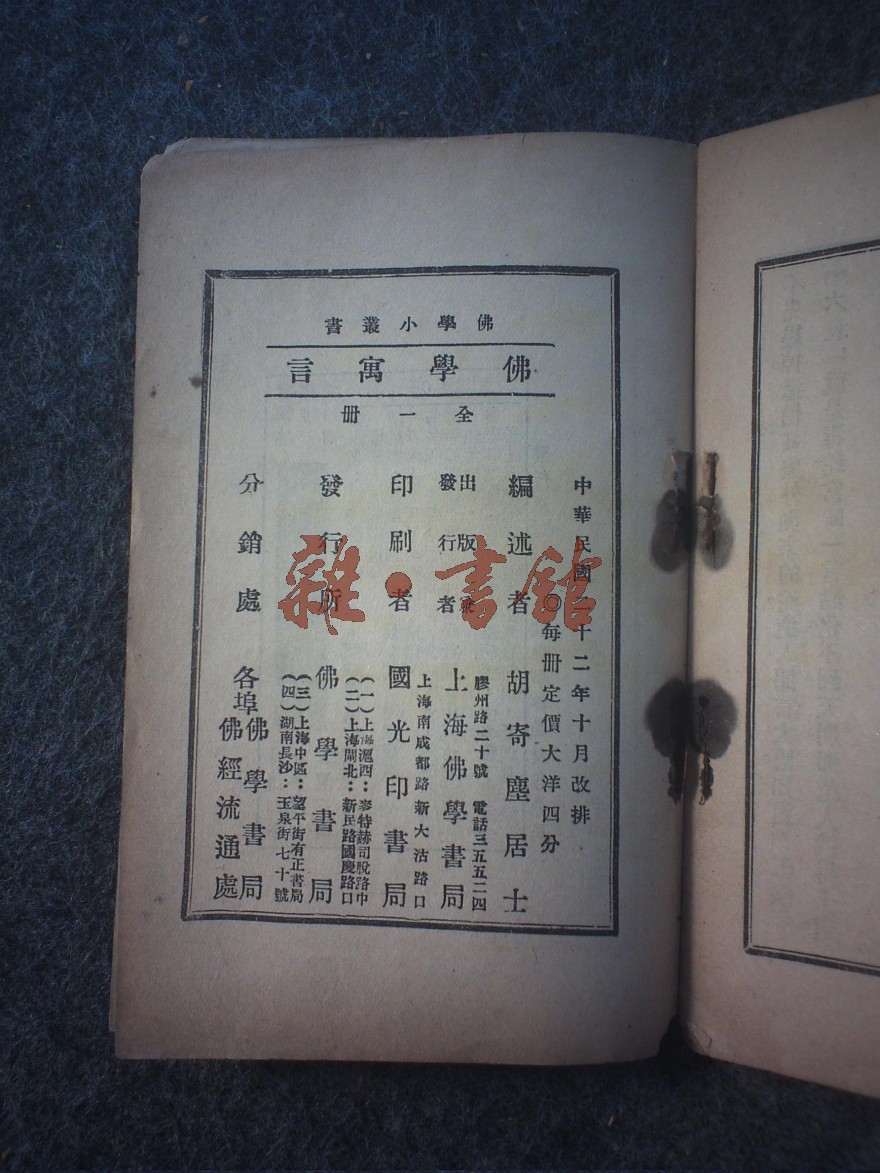 佛學小叢書
佛學寓言
全一册
中華民國二十二年十月改排
◎每册定價大洋四分
編述者 胡寄塵居士
膠州路二十號 電話三五五二四
出版兼發行者 上海佛學書局
上海南成都路新大沽路口
印刷者 國光印書局
(一)上海滬西:麥特赫司脫路中
(二)上海閘北:新民路國慶路口
發行所 佛學書局
(三)上海中區:望平街有正書局
(四)湖南長沙:玉泉街七十號
分銷處 各埠佛學書局
佛經流通處
雜·書館